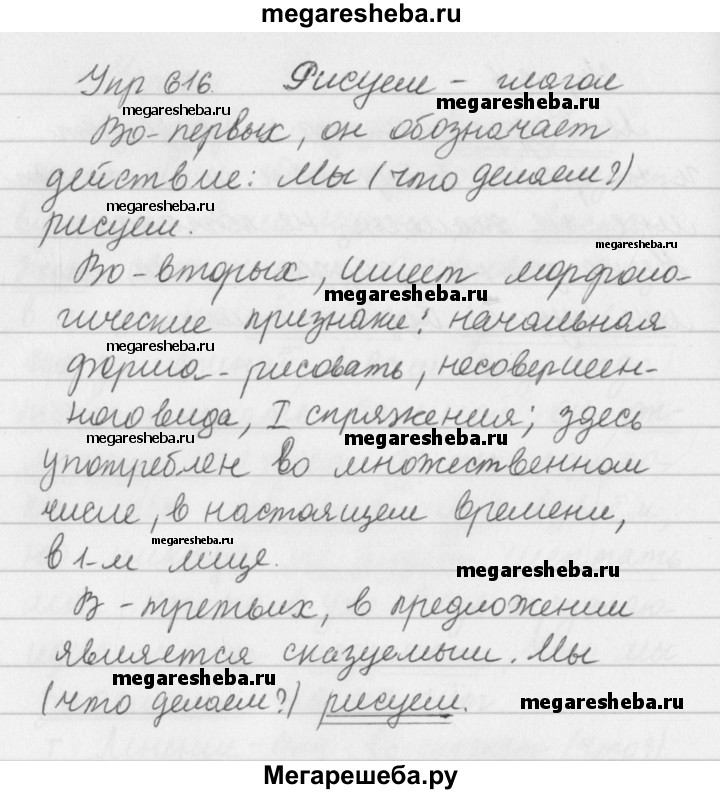 megaresheba.ru
Упр 616. Рисуем - глагол
megaresheba.ru megaresheba.ru
Во-первых, он обозначает
действие: Мы (что делаем?)
megaresheba.ru
рисуем.
megaresheba.ru
Во-вторых, имеет морфоло-
megaresheba.ru
гические признаки: начальная
megaresheba.ru
форма - рисовать, несовершен-
ного вида, I спряжения; здесь
megaresheba.ru megaresheba.ru
употреблен во множественном
числе, в настоящем времени,
в 1-м лице.
megaresheba.ru
В-третьих, в предложении
является сказуемым. Мы
megaresheba.ru
(что делаем?) рисуем.
megaresheba.ru
Мегарешеба.ру